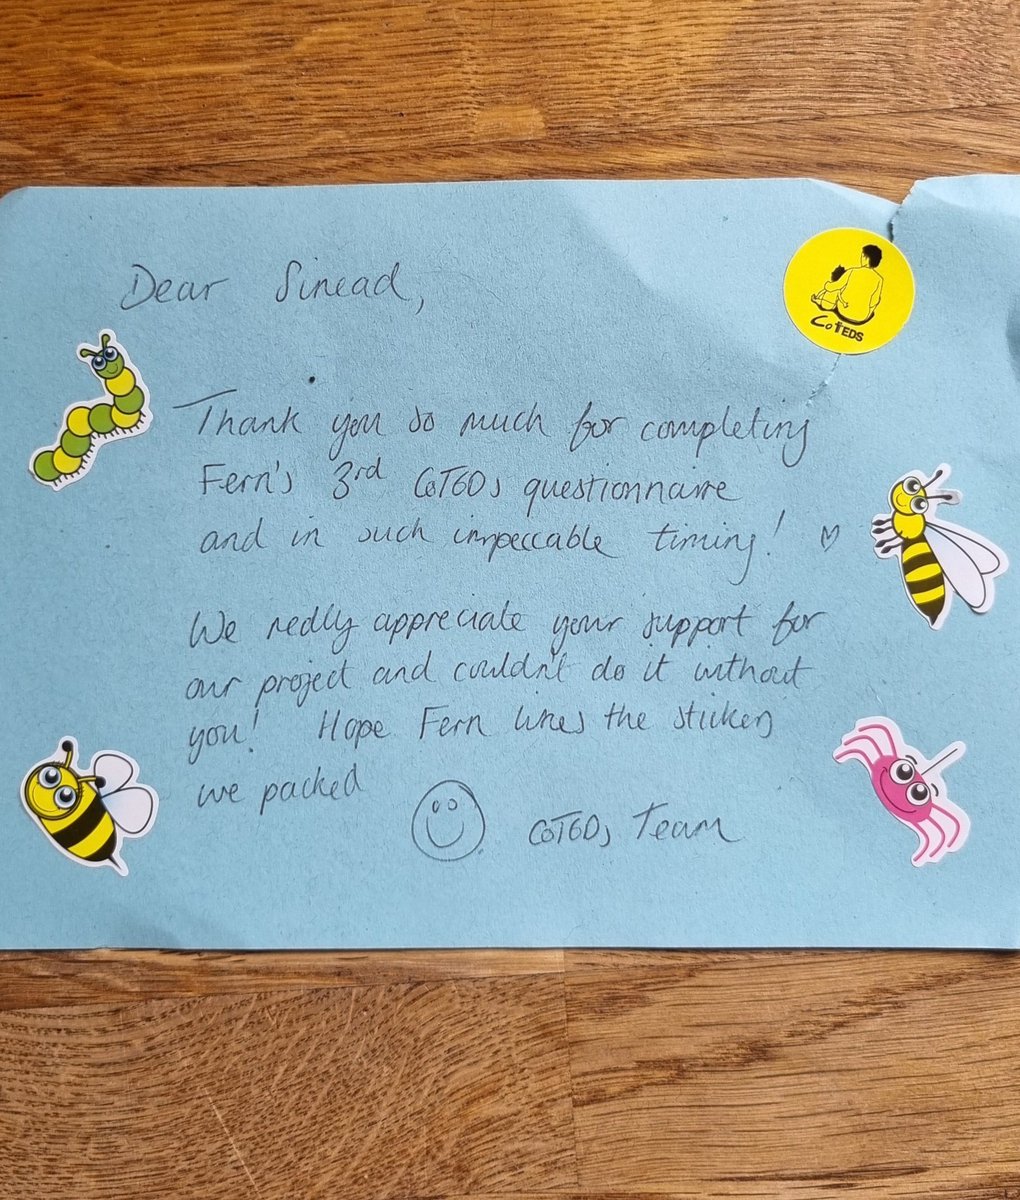 Dear Sinead,
CoTEDS
Thank you so much for completing
Fern's 3rd CoTEDS questionnaire
and in such impeccable timing! ♡
We really appreciate your support for
our project and couldn't do it without
you! Hope Fern likes the stickers
we packed
CoTEDS Team